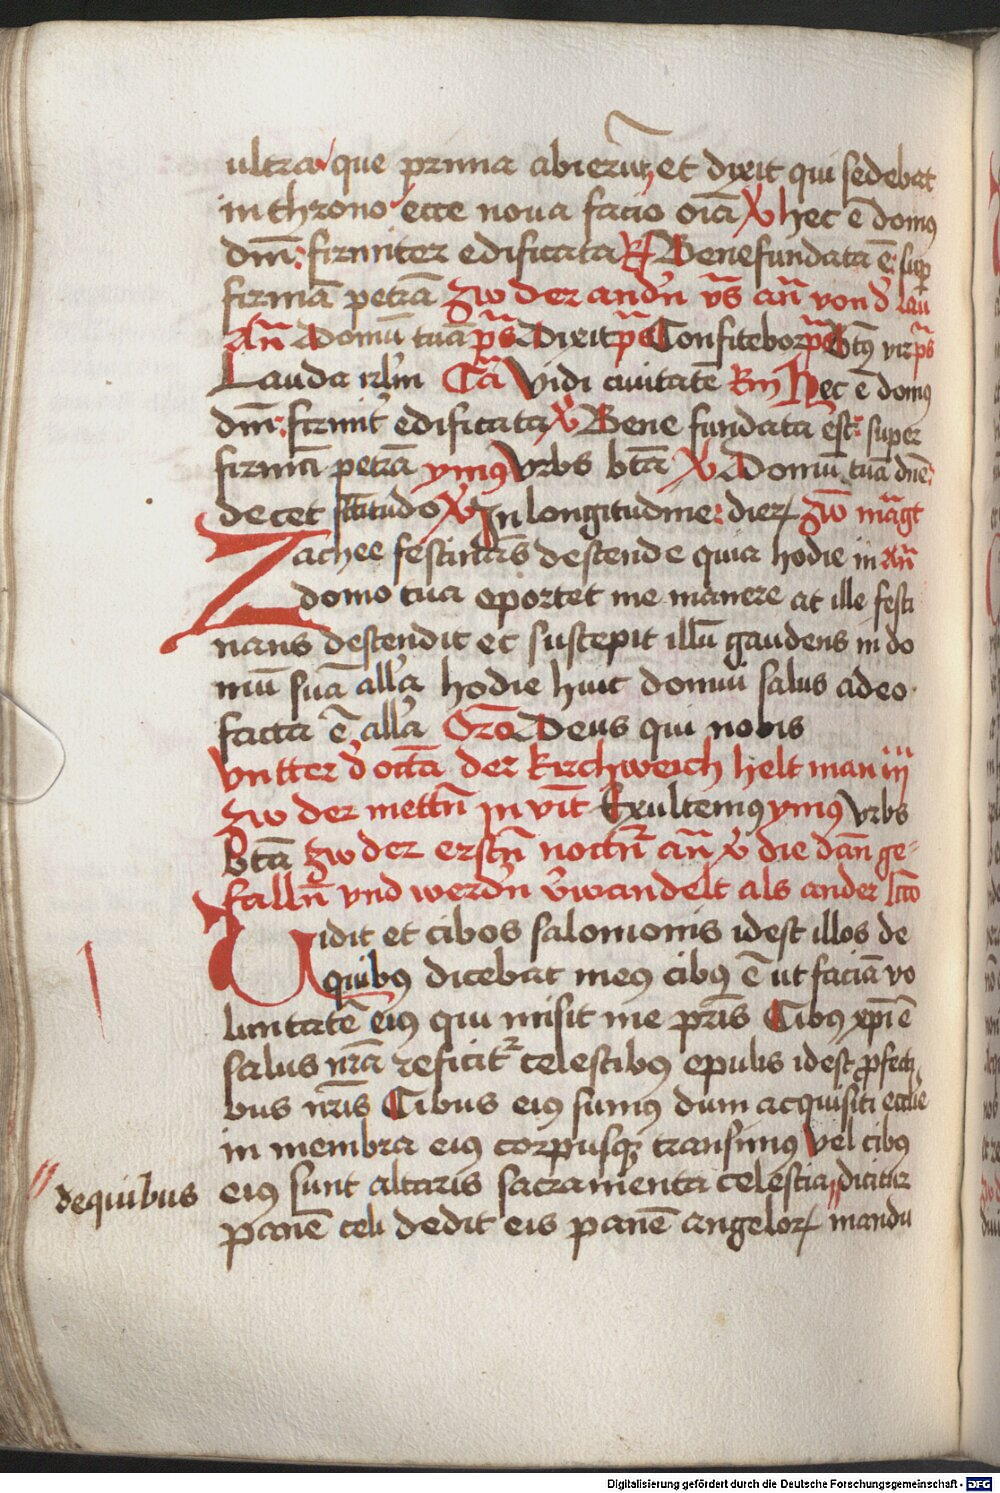 ultra que prima abierūt et dixit qui sedebat
in throno ecce noua facio oīa ℣ hec ē domꝯ
dnī firmiter edificata ℟ Bene fundata ē sup
firmā petrā Zw der andn̄ vs̄ an̄ von d' lau
An̄ Domū tuā ps̄ Dixit ps̄ Confitebor ps̄ Btꝯ vir ps̄
Lauda irlm̄ Ca̅ Vidi ciuitatē Rm Hec ē domꝯ
dnī firmit' edificata ℣ Bene fundata est super
firmā petrā ymꝯ Vrbs btā ℣ Domū tuā dn̄e
decet sctitudo ℣ In longitudine dieꝝ zw mag̅t
Zachee festinās descende quia hodie in An̄
domo tua oportet me manere at ille festi
nans descendit et suscepit illū gaudens in do
mū suā all'a hodie huic domui salus a deo
facta ē all'a Orō Deus qui nobis
Vntter d' octā der kirchweich helt man iij
Zw der mettn̄ In vit̄ Exultemꝯ ymꝯ Vrbs
Btā zw der erstn̄ noctn̄ an̄ v̓ die dan̄ ge
falln̄ vnd werdn̄ v̓wandelt als ander lcc̄o
Uidit et cibos salomonis idest illos de
quibꝯ dicebat meꝯ cibꝯ ē ut faciā vo
luntatē eiꝯ qui misit me pr̄is Cibꝯ xp̄i ē
salus nr̄a reficit celestibꝯ epulis idest ꝓfecti
bus nr̄is Cibus eiꝯ sumꝯ dum acquisiti eccl̄ie
in membra eiꝯ corpusqꝫ transimꝯ Vel cibꝯ
dequibus eiꝯ sunt altaris sacramenta celestia dicitur
panē celi dedit eis panē angeloꝝ mandu
Digitalisierung gefördert durch die Deutsche Forschungsgemeinschaft - DFG